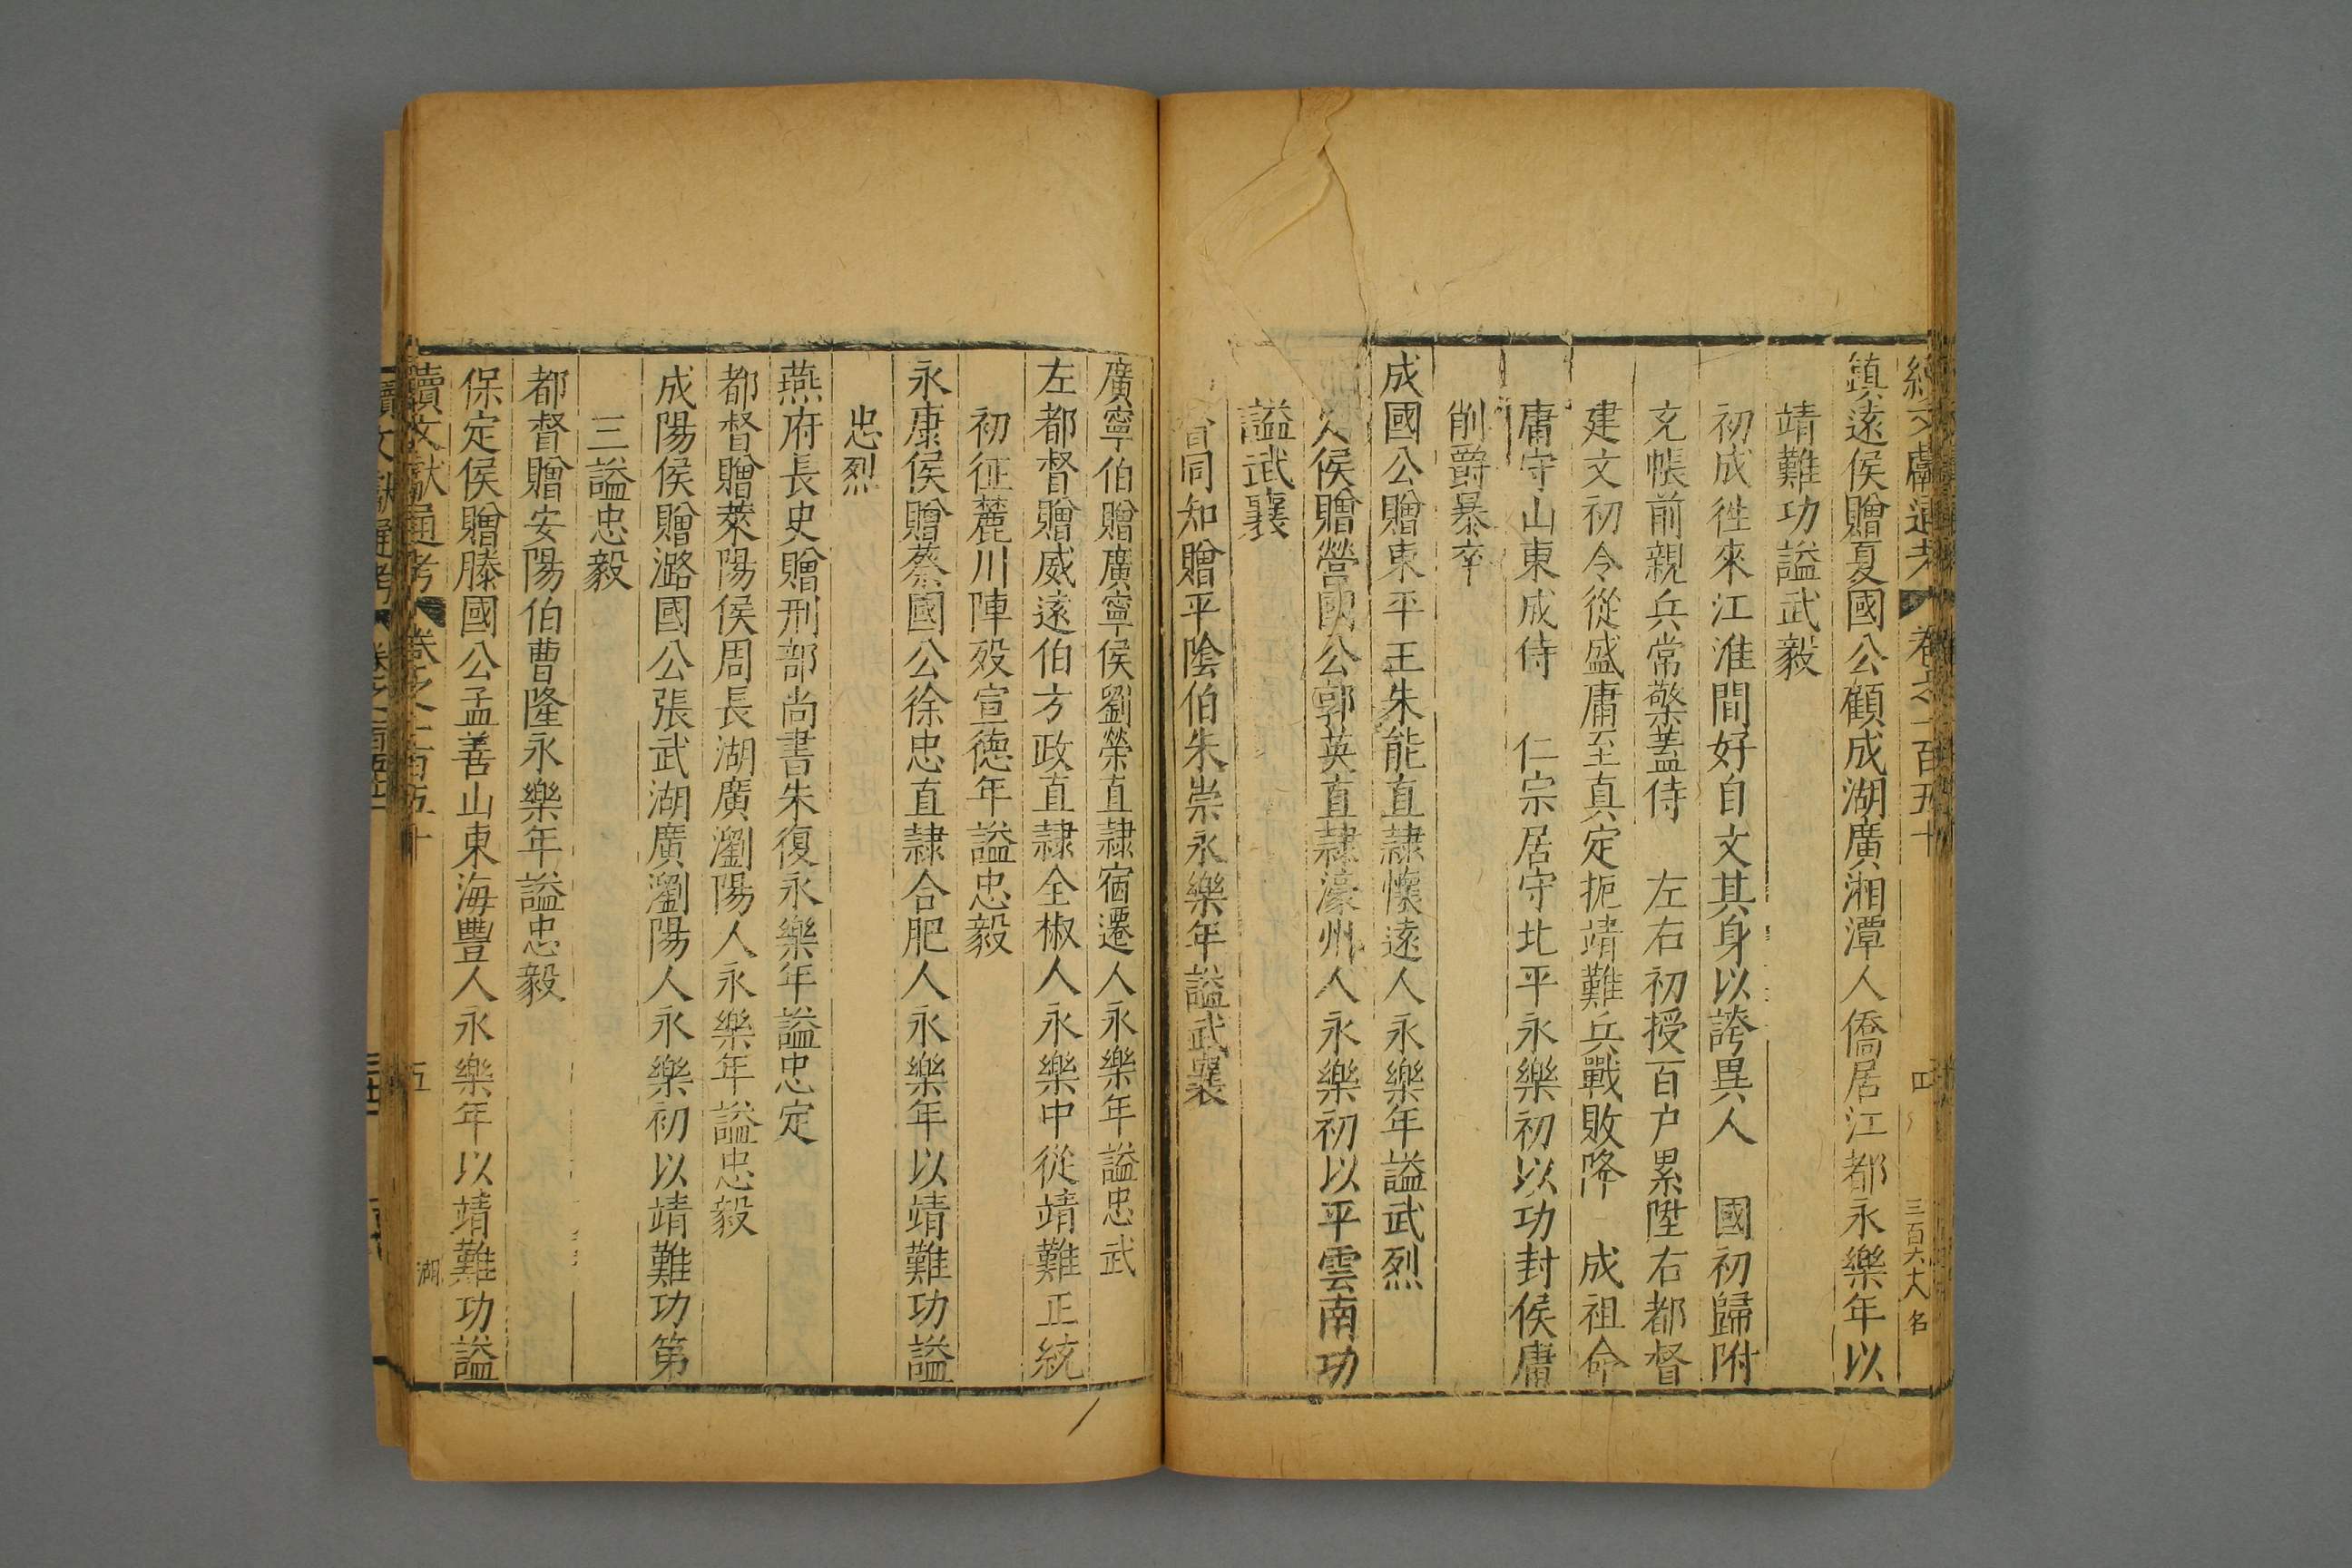 鎮遠侯贈夏國公顧成湖廣湘潭人僑居江都永樂年以
靖難功謚武毅
初成徃來江淮間好自文其身以誇異人 國初歸附
充帳前親兵常擎蓋侍 左右初授百户累陞右都督
建文初令從盛庸至真定扼靖難兵戰敗降 成祖命
庸守山東成侍 仁宗居守北平永樂初以功封侯庸
削爵暴卒
成國公贈東平王朱能直隷懷遠人永樂年謚武烈
侯贈營國公郭英直隷濠州人永樂初以平雲南功
謚武襄
同知贈平陰伯朱崇永樂年謚武襄
續文獻通考 卷之一百五十 四 三百六十八 名
廣寧伯贈廣寧侯劉榮直隷宿遷人永樂年謚忠武
左都督贈威遠伯方政直隷全椒人永樂中從靖難正統
初征麓川陣歿宣德年謚忠毅
永康侯贈蔡國公徐忠直隷合肥人永樂年以靖難功謚
忠烈
燕府長史贈刑部尚書朱復永樂年謚忠定
都督贈萊陽侯周長湖廣瀏陽人永樂年謚忠毅
成陽侯贈潞國公張武湖廣瀏陽人永樂初以靖難功第
三謚忠毅
都督贈安陽伯曹隆永樂年謚忠毅
保定侯贈滕國公孟善山東海豐人永樂年以靖難功謚
續文獻通考 卷之一百五十 五 湖